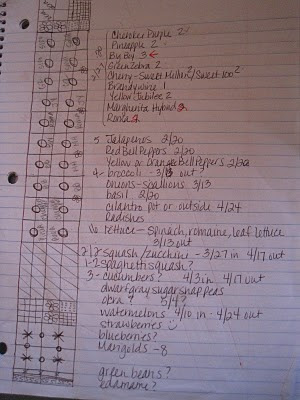 Cherokee Purple 2
Pineapple 2
Big Boy 3
Green Zebra 2
Cherry - Sweet Million 2/Sweet 100 2
Brandywine 1
Yellow Jubilee 2
Margherita Hybrid 2
Roma 2
5 Jalapenos 2/20
Red Bell Peppers 2/20
Yellow or Orange Bell Peppers 2/20
4 - broccoli - 3/13 out?
onions - scallions 3/13
basil 2/20
cilantro pot or outside 4/24
Radishes
lettuce - spinach, romaine, leaf lettuce
3/13 out
squash/zucchini - 3/27 in 4/17 out
1-2 spaghetti squash?
3 - cucumbers? 4/3 in 4/17 out
dwarf gray sugar snap peas
okra? 5/4?
watermelons 4/10 in - 4/24 out
strawberries
blueberries?
Marigolds - 8
green beans?
edamame?